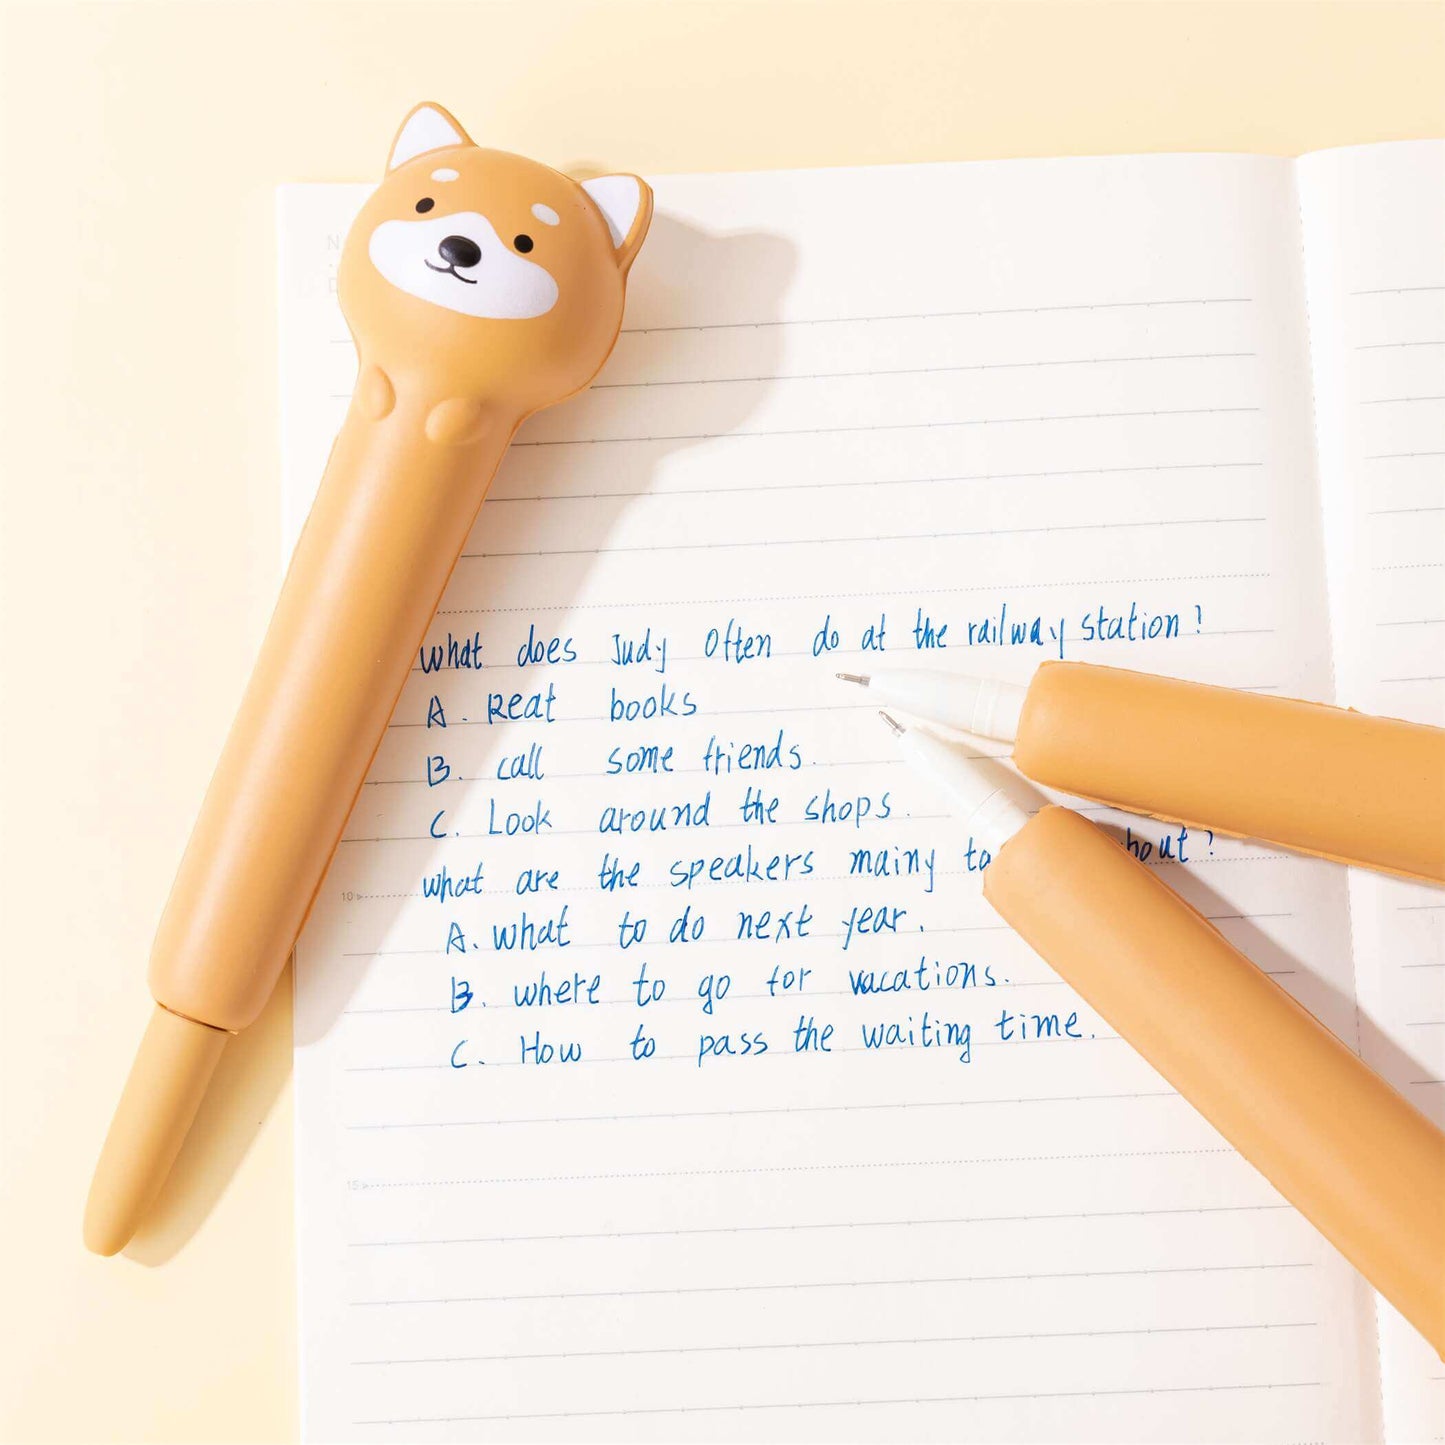 what does Judy Often do at the railway station?
A. Reat books
B. call some friends.
C. Look around the shops.
what are the speakers mainy ta bout?
A. what to do next year.
B. where to go for vacations.
C. How to pass the waiting time.
10
15